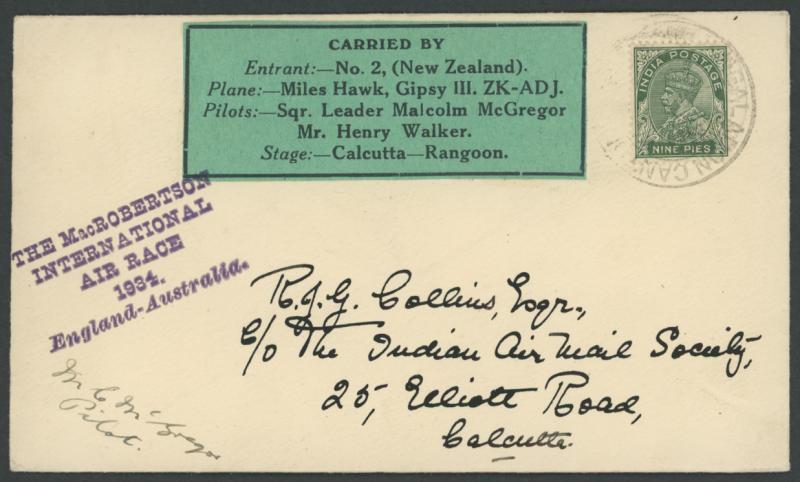 CARRIED BY
Entrant:—No. 2, (New Zealand).
Plane:—Miles Hawk, Gipsy III. ZK-ADJ.
Pilots:—Sqr. Leader Malcolm McGregor
Mr. Henry Walker.
Stage:—Calcutta—Rangoon.
INDIA POSTAGE
NINE PIES
THE MacROBERTSON
INTERNATIONAL
AIR RACE
1934.
England-Australia.
R.J.G. Collins, Esqr.,
C/o The Indian Air Mail Society,
25, Elliott Road,
Calcutta.
M C McGregor
Pilot.